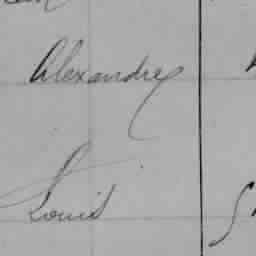 Alexandre
Louis